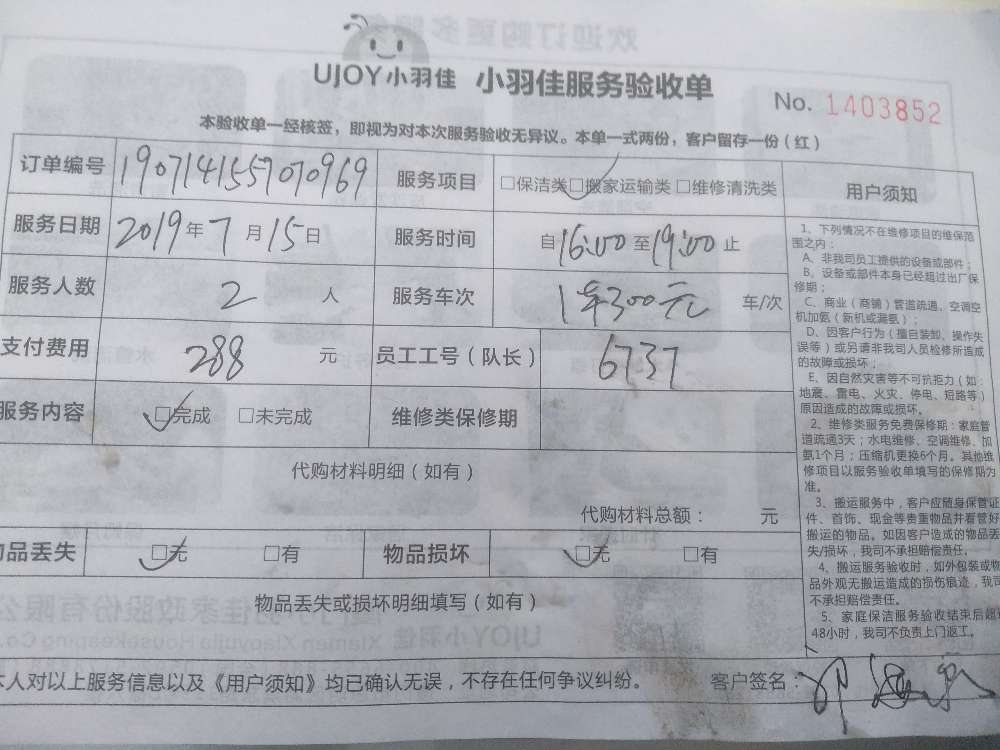 UJOY小羽佳 小羽佳服务验收单
No. 1403852
本验收单一经核签，即视为对本次服务验收无异议。本单一式两份，客户留存一份（红）
订单编号 1907141557070969 服务项目 □保洁类 □搬家运输类 □维修清洗类
服务日期 2019年7月15日 服务时间 自16:00至19:00止
服务人数 2 人 服务车次 1车300元 车/次
支付费用 288 元 员工工号（队长） 6737
服务内容 □完成 □未完成 维修类保修期
代购材料明细（如有）
代购材料总额： 元
品丢失 □无 □有 物品损坏 □无 □有
物品丢失或损坏明细填写（如有）
本人对以上服务信息以及《用户须知》均已确认无误，不存在任何争议纠纷。 客户签名：
用户须知
1、下列情况不在维修项目的维保范
围之内：
A、非我司员工提供的设备或部件；
B、设备或部件本身已经超过出厂保
修期；
C、商业（商铺）管道疏通、空调空
机加氨（新机或漏氨）；
D、因客户行为（擅自装卸、操作失
误等）或另请非我司人员检修所造成
的故障或损坏；
E、因自然灾害等不可抗拒力（如：
地震、雷电、火灾、停电、短路等）
原因造成的故障或损坏。
2、维修类服务免费保修期：家庭管
道疏通3天；水电维修、空调维修、加
氨1个月；压缩机更换6个月。其他维
修项目以服务验收单填写的保修期为
准。
3、搬运服务中，客户应随身保管证
件、首饰、现金等贵重物品并看管好
搬运的物品。如因客户造成的物品丢
失/损坏，我司不承担赔偿责任。
4、搬运服务验收时，如外包装或物
品外观无搬运造成的损伤痕迹，我司
不承担赔偿责任。
5、家庭保洁服务验收结束后超过
48小时，我司不负责上门返工。